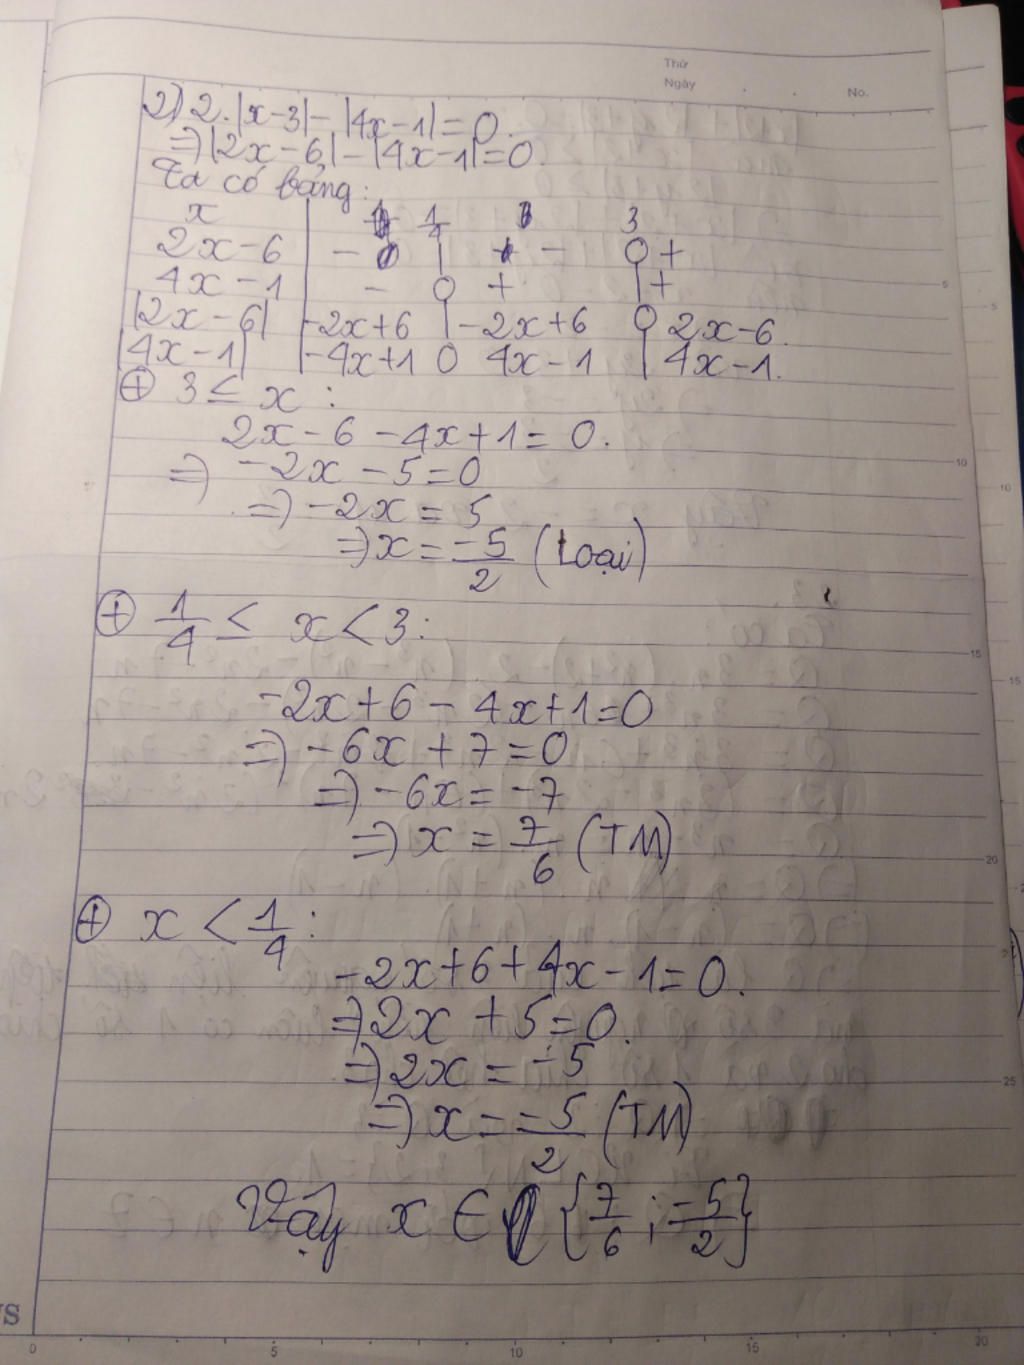 Thứ
Ngày . . No.
2) 2.|x-3|-|4x-1|=0.
=>|2x-6|-|4x-1|=0.
Ta có bảng:
x 1/4 3
2x-6 - | - 0 +
4x-1 - 0 + | +
|2x-6| -2x+6 | -2x+6 0 2x-6.
|4x-1| -4x+1 0 4x-1 | 4x-1.
⊕ 3 ≤ x :
2x-6-4x+1=0.
=> -2x-5=0
=> -2x=5
=> x=-5/2 (Loại)
⊕ 1/4 ≤ x < 3:
-2x+6-4x+1=0
=> -6x+7=0
=> -6x=-7
=> x=7/6 (TM)
⊕ x < 1/4:
-2x+6+4x-1=0.
=> 2x+5=0.
=> 2x=-5
=> x=-5/2 (TM)
Vậy x ∈ {7/6; -5/2}
0 5 10 15 20